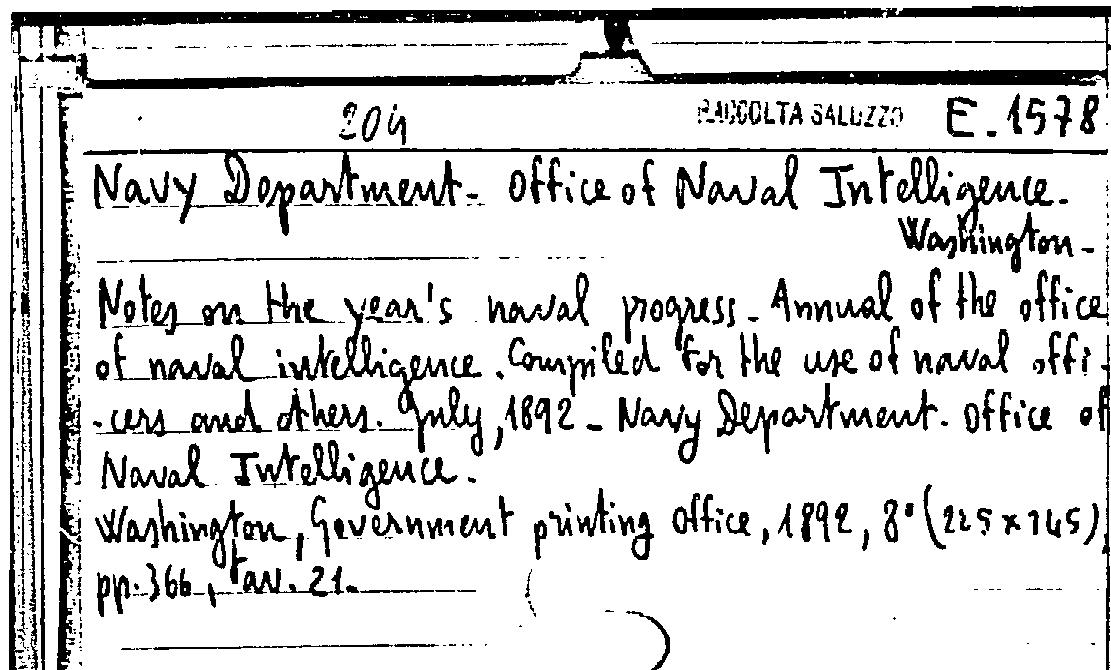 204 RACCOLTA SALUZZO E.1578
Navy Department. Office of Naval Intelligence.
Washington.
Notes on the year's naval progress. Annual of the office
of naval intelligence. Compiled for the use of naval offi-
-cers and others. July, 1892 - Navy Department. Office of
Naval Intelligence.
Washington, Government printing office, 1892, 8° (225 x 145),
pp. 366, tav. 21.